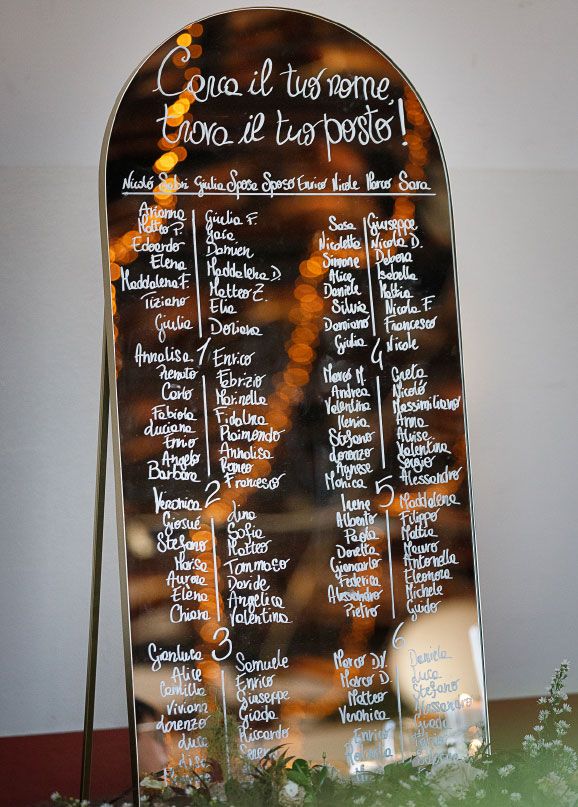 Cerca il tuo nome,
trova il tuo posto!
Nicoló Sabri Giulia Sposa Sposo Enrico Nicole Marco Sara
Arianna Giulia F.
Matteo P. Gaia
Edoardo Damien
Elena Maddalena D.
Maddalena F. Matteo Z.
Tiziano Elia
Giulia Doriana
1
Annalisa Enrico
Renato Fabrizio
Carlo Marinella
Fabiola Fidalma
Luciana Raimondo
Ennio Annalisa
Angelo Romeo
Barbara Francesco
2
Veronica Lina
Giosué Sofia
Stefano Matteo
Marisa Tommaso
Aurora Davide
Elena Angelica
Chiara Valentina
3
Gianluca Samuele
Alice Enrico
Camilla Giuseppe
Viviana Giada
Lorenzo Riccardo
Luca
Sasa Giuseppe
Nicoletta Nicola D.
Simone Debora
Alice Isabella
Daniele Mattia
Silvia Nicola F.
Damiano Francesco
Giulia Nicole
4
Marco M. Greta
Andrea Nicoló
Valentina Massimiliano
Ilenia Anna
Stefano Alvise
Lorenzo Valentina
Agnese Sergio
Monica Alessandro
5
Irene Maddalena
Alberto Filippo
Paola Mattia
Doretta Mauro
Giancarlo Antonella
Federica Eleonora
Alessandro Michele
Pietro Guido
6
Marco D.V. Daniela
Marco D. Luca
Matteo Stefano
Veronica Alessandro
Enrico Giada